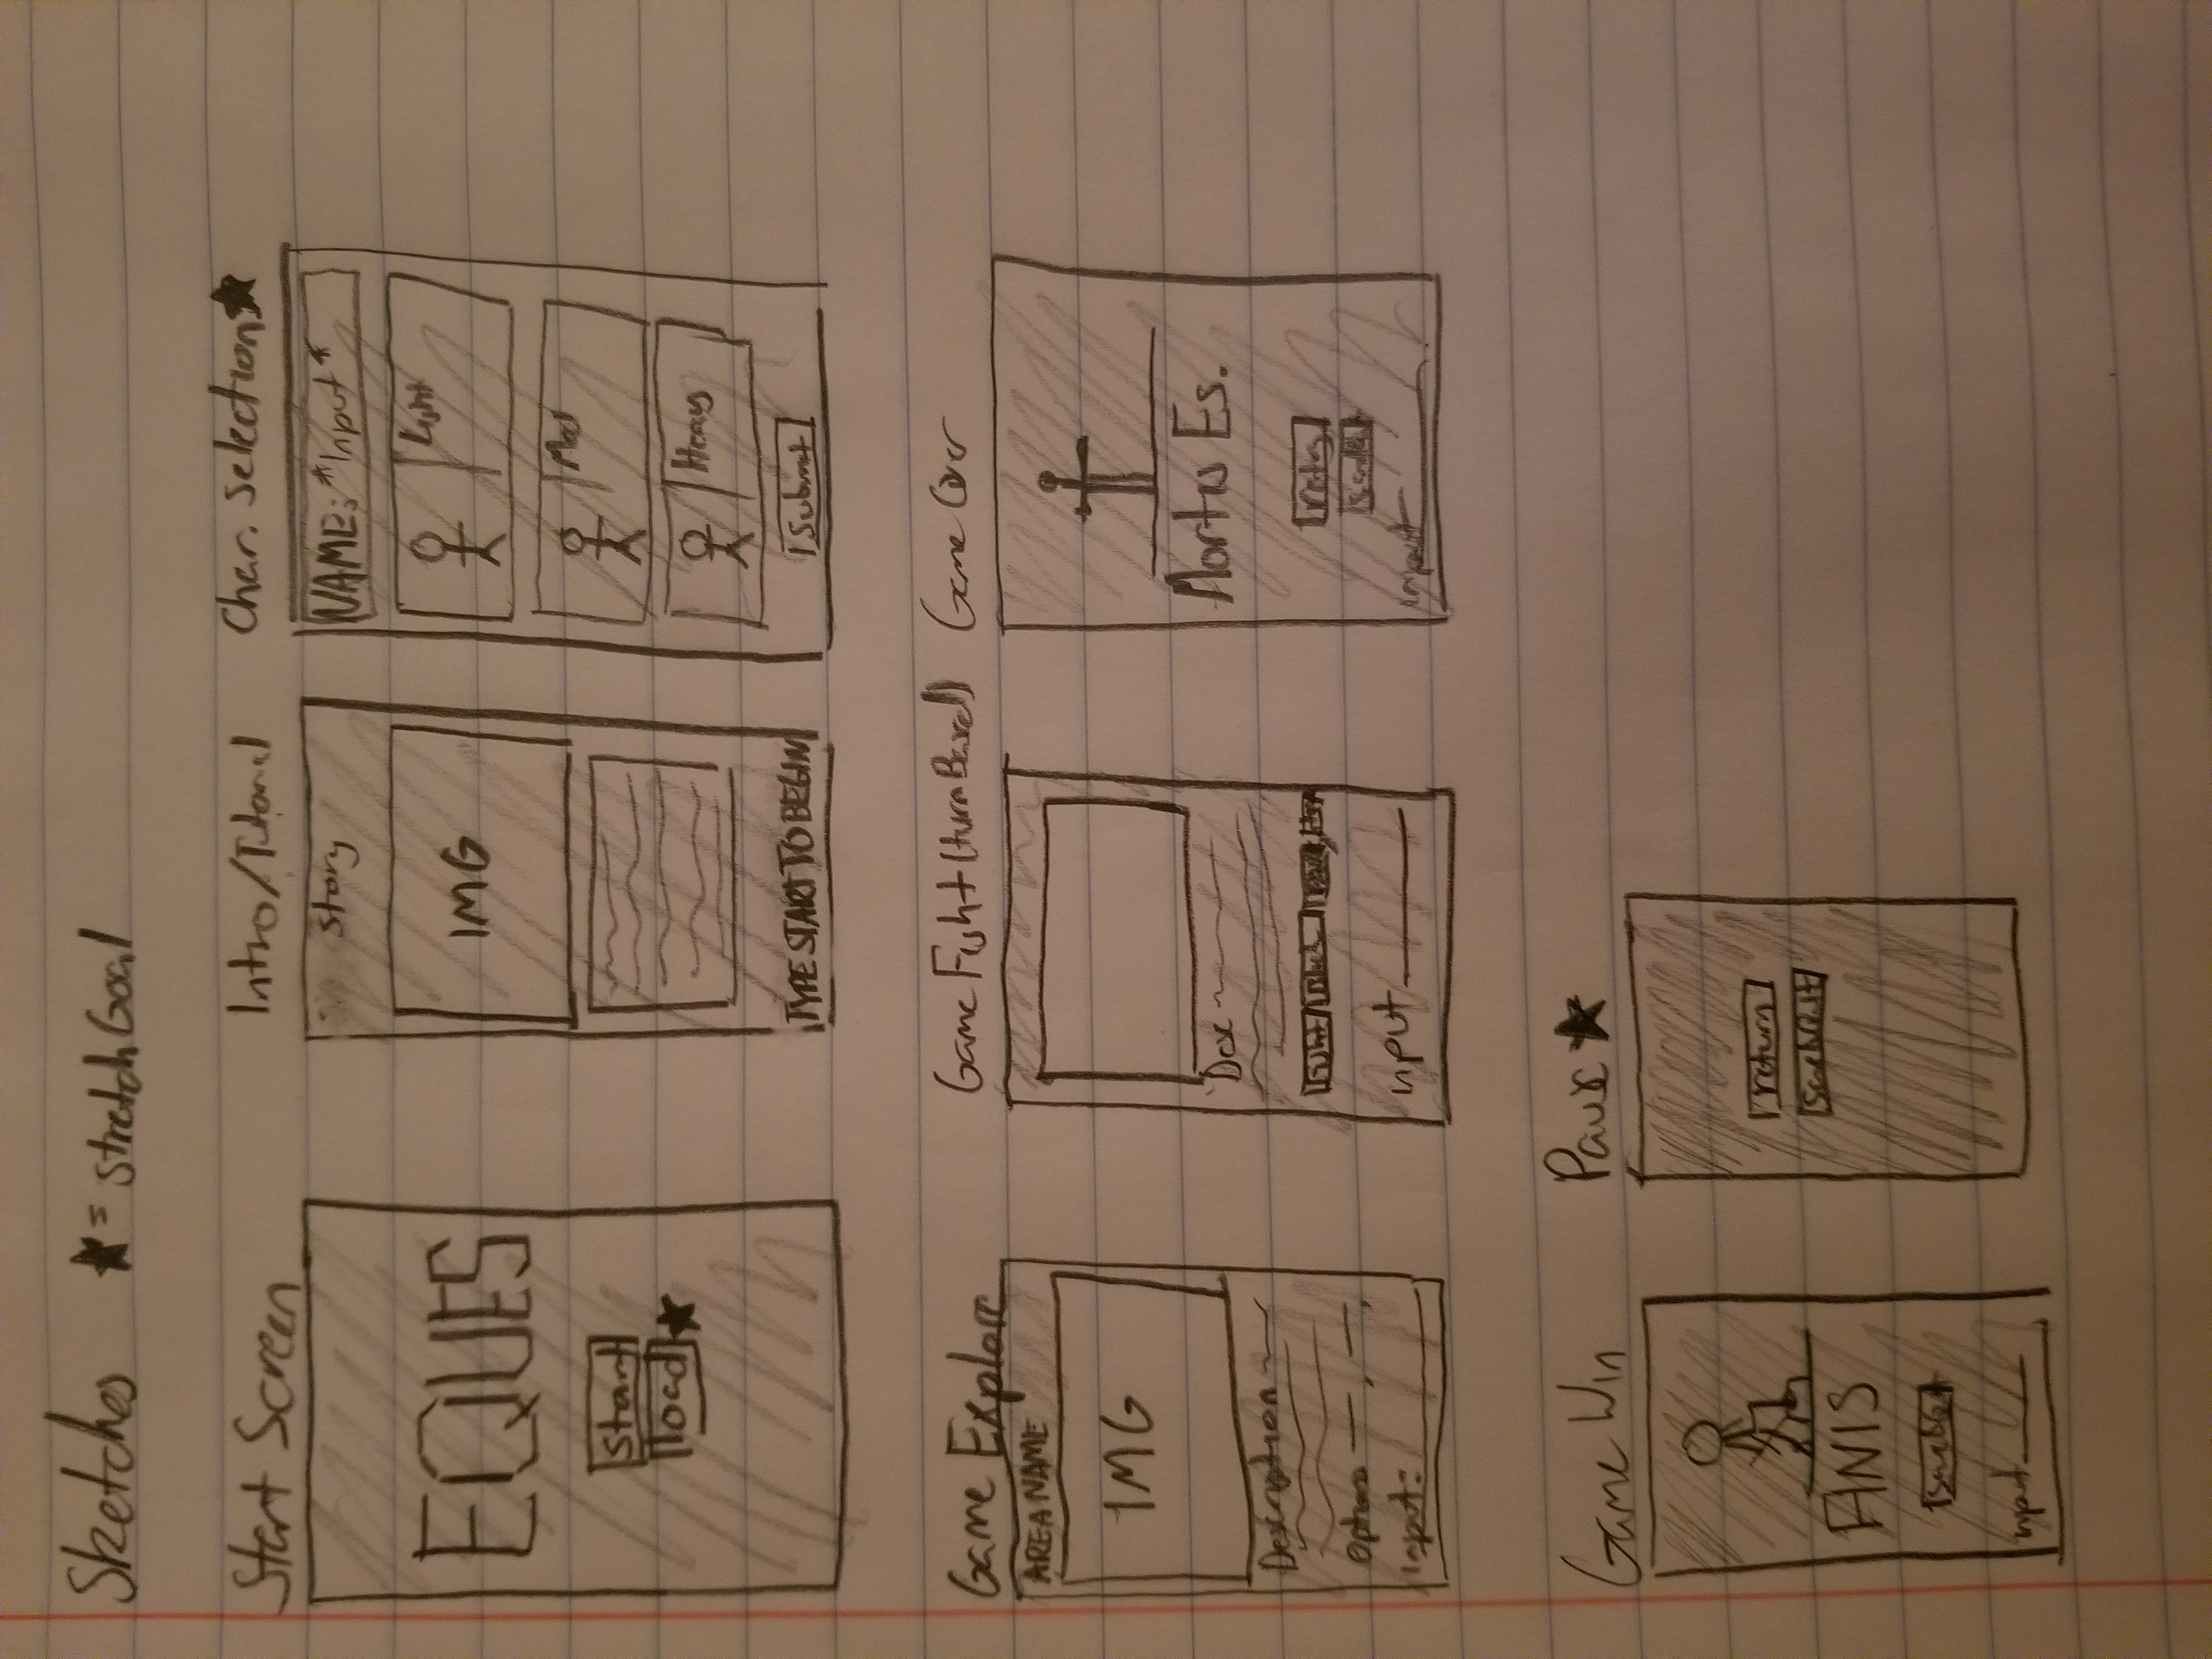 Sketches ★ = Stretch Goal
Start Screen
EQUES
Start
load ★
Intro/Tutorial
Story
IMG
TYPE START TO BEGIN
Char. Selection ★
NAME: *Input*
Light
Med
Heavy
Submit
Game Explore
AREA NAME
IMG
Description
Options
Input:
Game Fight (turn Based)
Desc
Fight Block
input
Game Over
Mortus Es.
retry
input
Game Win
FINIS
input
Pause ★
return